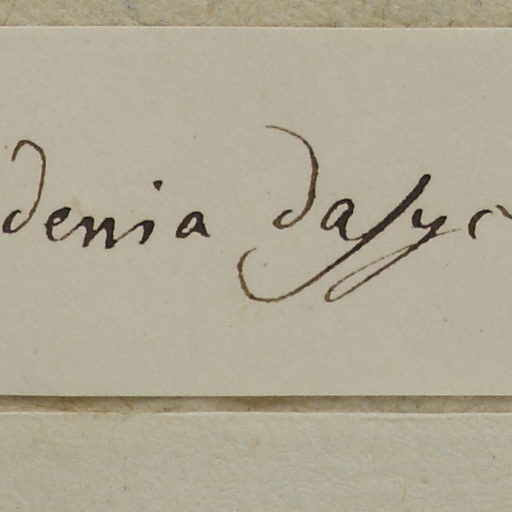 denia daſyc